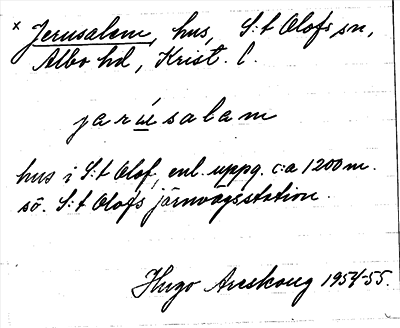 × Jerusalem, hus, S:t Olofs sn,
Albo hd, Krist. l.
jarúsalam
hus i S:t Olof, enl. uppg. c:a 1200 m.
sö. S:t Olofs järnvägsstation.
Hugo Areskoug 1954-55.